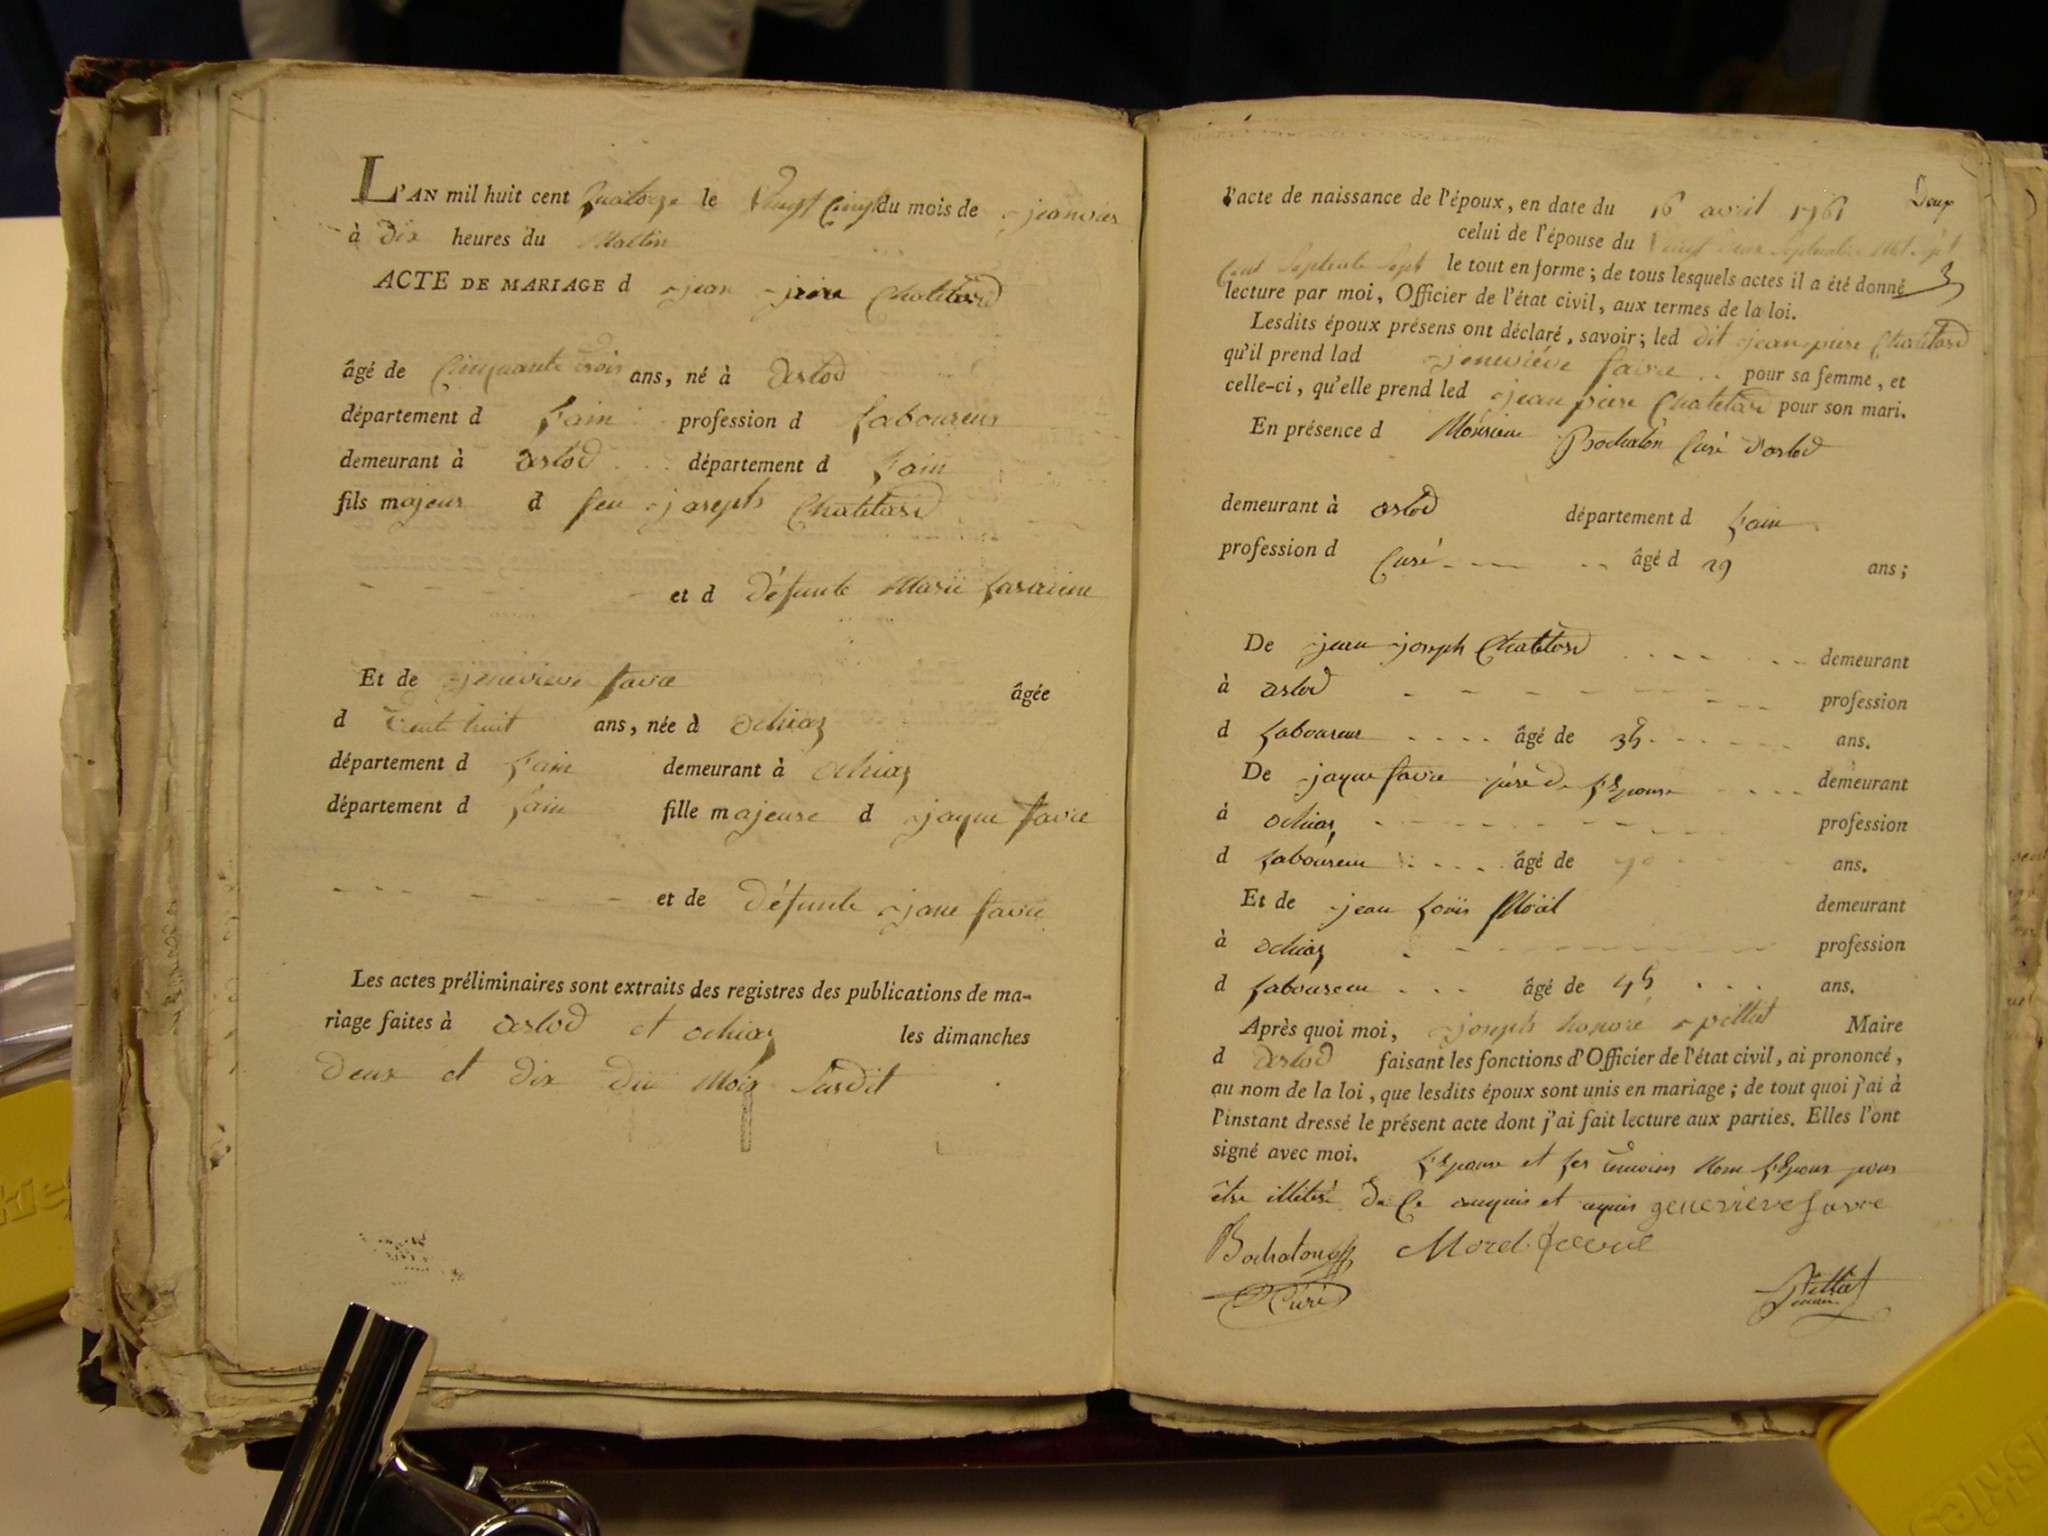 L'AN mil huit cent quatorze le Vingt Cinq du mois de jeanvier
à dix heures du Mattin
ACTE DE MARIAGE d jean piere Chatelard
âgé de Cinquante trois ans, né à arlod
département d L'ain profession d Laboureur
demeurant à arlod département d L'ain
fils majeur d feu joseph Chatelard
et d défunte Marie
Et de jenevieve favre âgée
d trente huit ans, née à ochiaz
département d L'ain demeurant à ochiaz
département d L'ain fille majeure d jaque favre
et de défunte jane favre
Les actes préliminaires sont extraits des registres des publications de ma-
riage faites à arlod et ochiaz les dimanches
deux et dix du Mois susdit
Deux
l'acte de naissance de l'époux, en date du 16 avril 1761
celui de l'épouse du Vingt deux Septembre Mil Sept
Cent Septente Sept le tout en forme ; de tous lesquels actes il a été donné
lecture par moi, Officier de l'état civil, aux termes de la loi.
Lesdits époux présens ont déclaré, savoir ; led dit jean piere Chatelard
qu'il prend lad jeneviéve favre pour sa femme, et
celle-ci, qu'elle prend led jean piere Chatelard pour son mari.
En présence d Monsieur Bochaton Curé d'arlod
demeurant à arlod département d L'ain
profession d Curé âgé d 29 ans ;
De jean joseph Chatelard demeurant
à arlod profession
d Laboureur âgé de 35 ans.
De jaque favre pére de L'Epouse demeurant
à ochiaz profession
d Laboureur âgé de 70 ans.
Et de jean Louis Morel demeurant
à ochiaz profession
d Laboureur âgé de 45 ans.
Après quoi moi, joseph honoré pillict Maire
d arlod faisant les fonctions d'Officier de l'état civil, ai prononcé,
au nom de la loi, que lesdits époux sont unis en mariage ; de tout quoi j'ai à
l'instant dressé le présent acte dont j'ai fait lecture aux parties. Elles l'ont
signé avec moi. L'Epouse et les temoins Non L'Epoux pour
être illiteré de Ce enquis et requis genevieve favre
Bochaton Morel favre
Curé